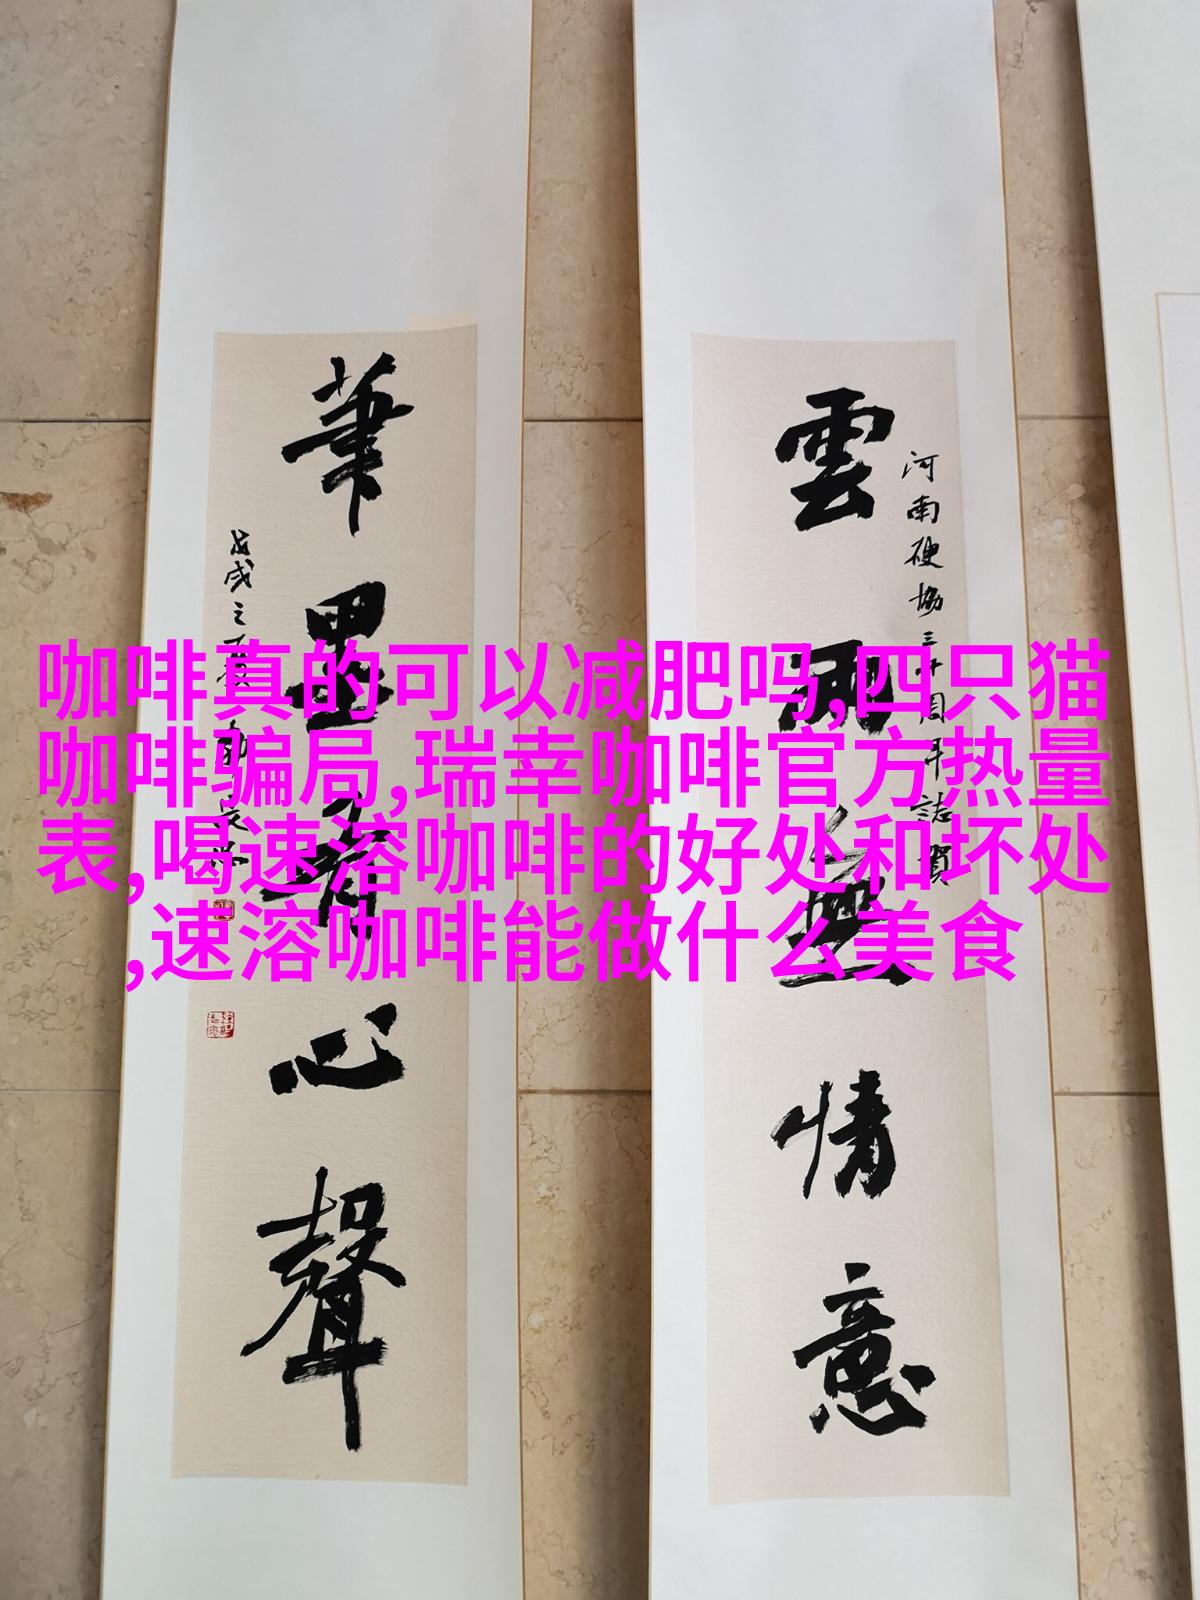 咖啡真的可以减肥吗,四只猫
咖啡骗局,瑞幸咖啡官方热量
表,喝速溶咖啡的好处和坏处
,速溶咖啡能做什么美食
雲雨無情意
河南硬協三十周年誌賀
筆墨有心聲
戊戌之夏